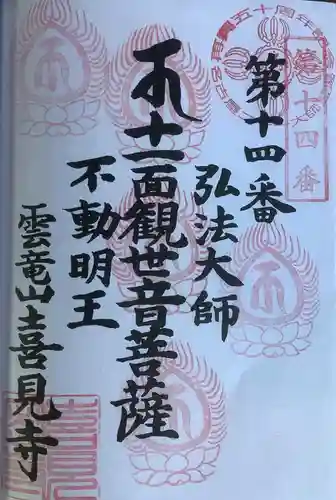 第十四番
第十四番
弘法大師
十一面觀世音菩薩
不動明王
雲竜山喜見寺